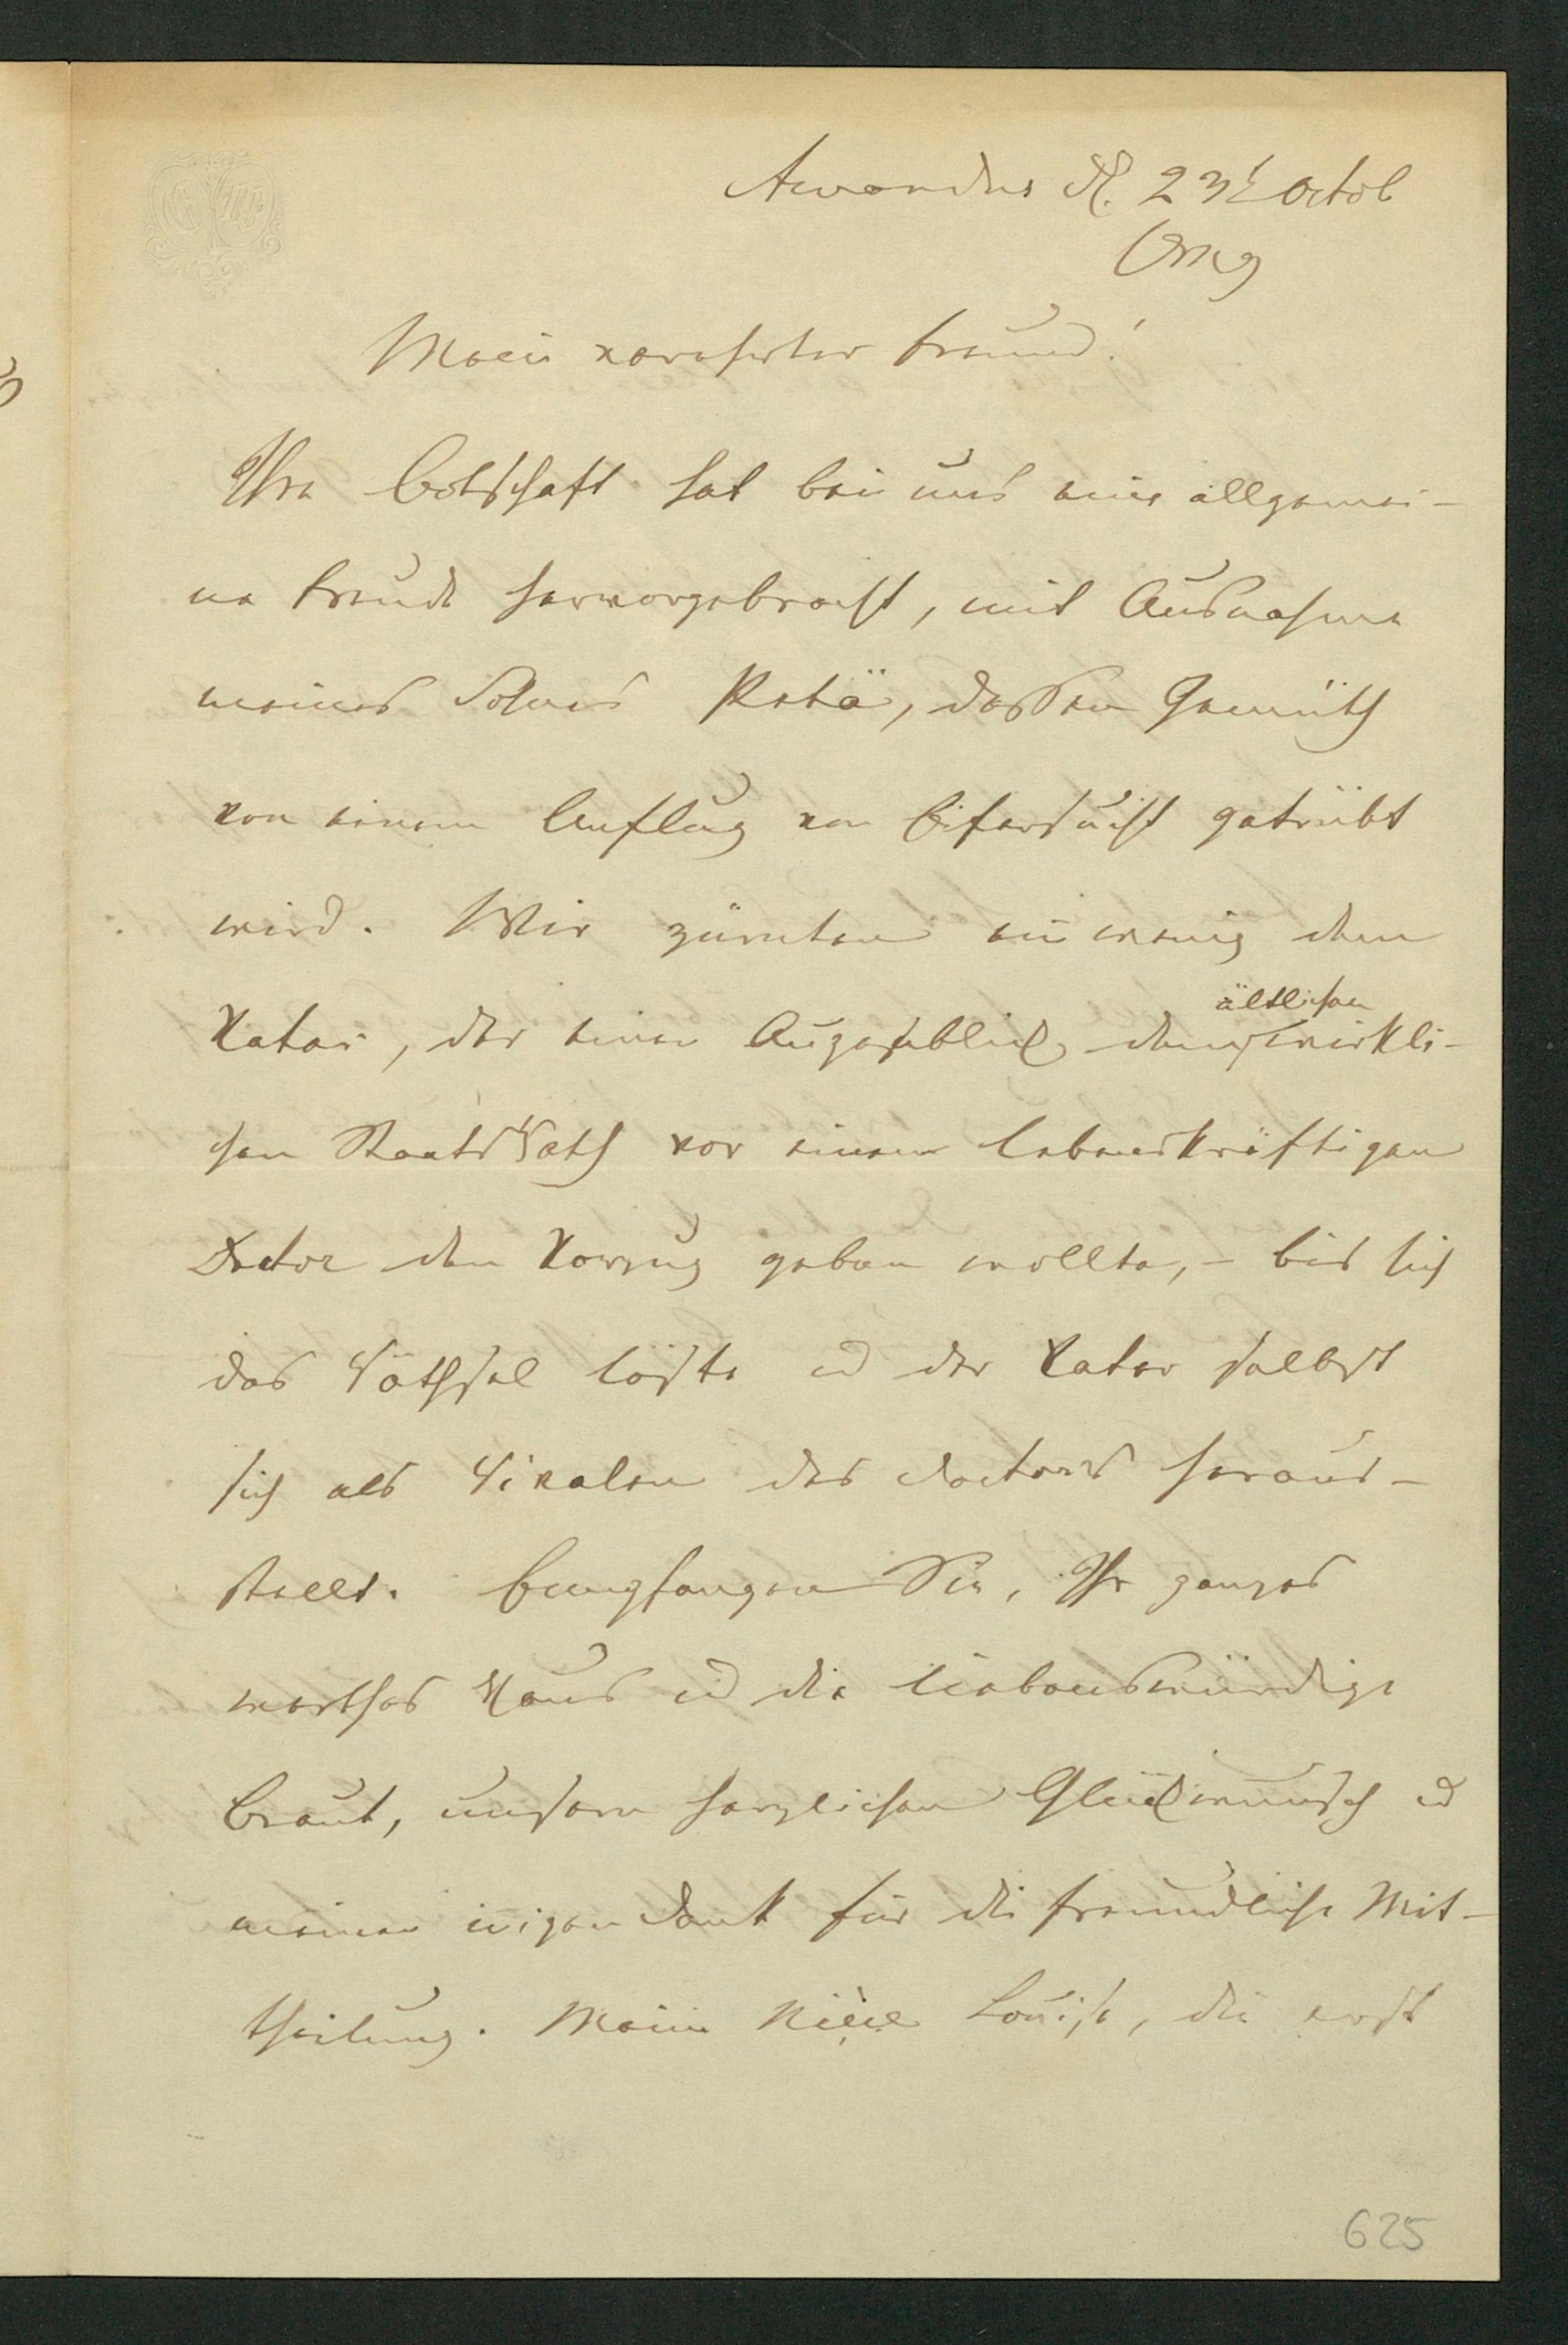 Awandus d. 23t Octob
Mein verehrter Freund!
Ihre Botschaft hat bei uns eine allgemei-
ne Freude hervorgebracht, mit Ausnahme
meines Sohnes Petä, dessen Gemüth
von einem Anflug von Eifersucht getrübt
wird. Wir zürnten ein wenig dem
Vater, der einen Augenblick dem ältlichen wirkli-
chen Staatsrath vor einem lebenskräftigen
Doctor den Vorzug geben wollte, – bis sich
das Räthsel löste u der Vater selbst
sich als Rivalen des Doctors heraus-
stellt. Empfangen Sie, Ihr ganzes
werthes Haus u die liebenswürdige
Braut, unsern herzlichen Glückwunsch u
meinen innigen Dank für die freundliche Mit-
theilung. Meine Nièce Louise, die erst
625